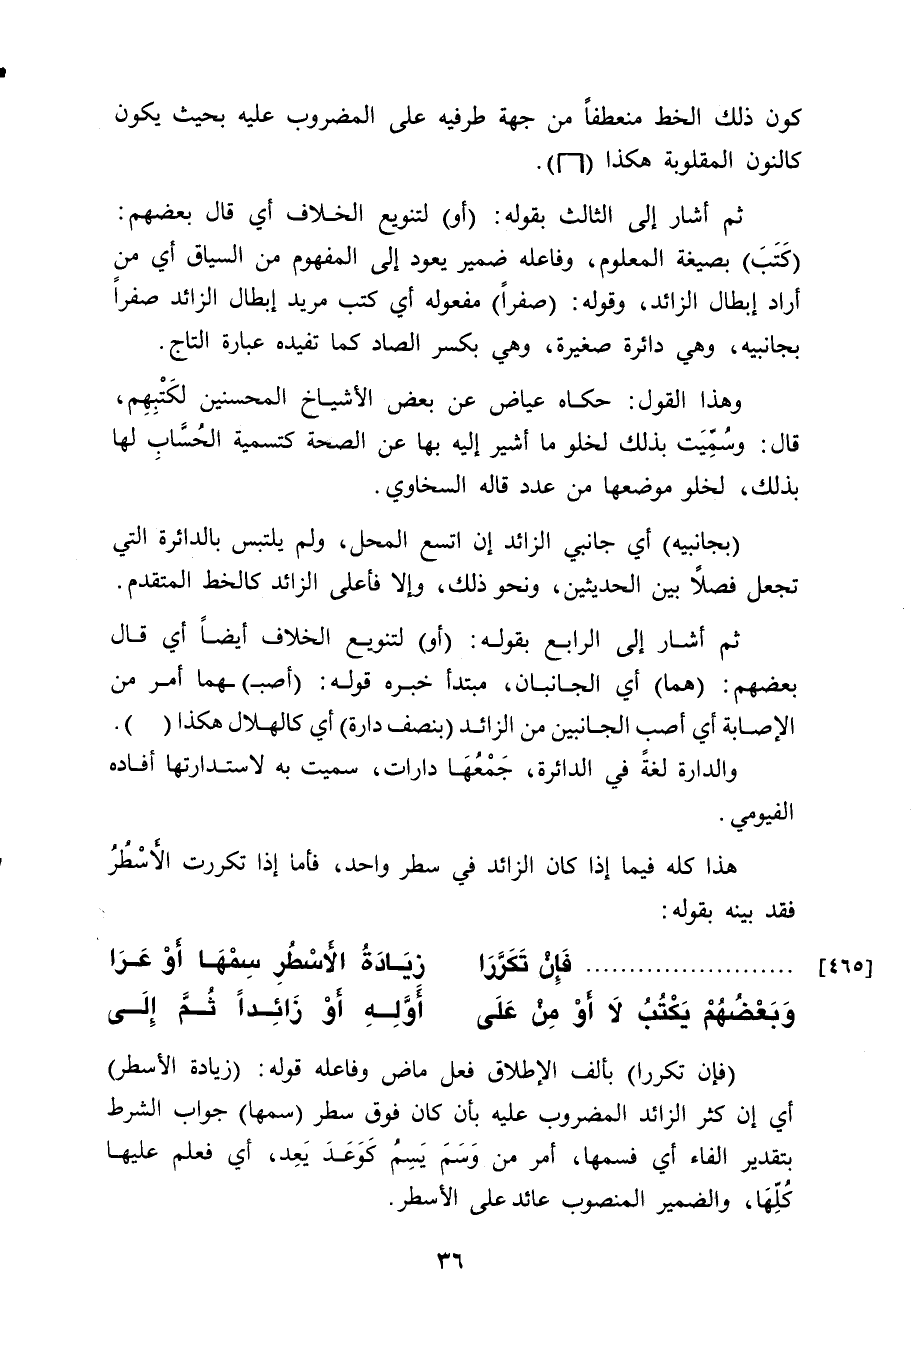 كون ذلك الخط منعطفاً من جهة طرفيه على المضروب عليه بحيث يكون
كالنون المقلوبة هكذا (⊓).
ثم أشار إلى الثالث بقوله: (أو) لتنويع الخلاف أي قال بعضهم:
(كَتَبَ) بصيغة المعلوم، وفاعله ضمير يعود إلى المفهوم من السياق أي من
أراد إبطال الزائد، وقوله: (صفراً) مفعوله أي كتب مريد إبطال الزائد صفراً
بجانبيه، وهي دائرة صغيرة، وهي بكسر الصاد كما تفيده عبارة التاج.
وهذا القول: حكاه عياض عن بعض الأشياخ المحسنين لكَتْبِهِم،
قال: وسُمِّيَت بذلك لخلو ما أشير إليه بها عن الصحة كتسمية الحُسَّابِ لها
بذلك، لخلو موضعها من عدد قاله السخاوي.
(بجانبيه) أي جانبي الزائد إن اتسع المحل، ولم يلتبس بالدائرة التي
تجعل فصلاً بين الحديثين، ونحو ذلك، وإلا فأعلى الزائد كالخط المتقدم.
ثم أشار إلى الرابع بقوله: (أو) لتنويع الخلاف أيضاً أي قال
بعضهم: (هما) أي الجانبان، مبتدأ خبره قوله: (أصبـ)ـهما أمر من
الإصابة أي أصب الجانبين من الزائد (بنصف دارة) أي كالهلال هكذا (    ).
والدارة لغةً في الدائرة، جَمْعُهَا دارات، سميت به لاستدارتها أفاده
الفيومي.
هذا كله فيما إذا كان الزائد في سطر واحد، فأما إذا تكررت الأَسْطُرُ
فقد بينه بقوله:
[٤٦٥] ........................ فَإِنْ تَكَرَّرَا زِيَادَةُ الأَسْطُرِ سِمْهَا أَوْ عَرَا
وَبَعْضُهُمْ يَكْتُبُ لَا أَوْ مِنْ عَلَى أَوَّلِهِ أَوْ زَائِداً ثُمَّ إِلَى
(فإن تكررا) بألف الإطلاق فعل ماض وفاعله قوله: (زيادة الأسطر)
أي إن كثر الزائد المضروب عليه بأن كان فوق سطر (سمها) جواب الشرط
بتقدير الفاء أي فسمها، أمر من وَسَمَ يَسِمُ كَوَعَدَ يَعِد، أي فعلم عليها
كُلِّهَا، والضمير المنصوب عائد على الأسطر.
٣٦